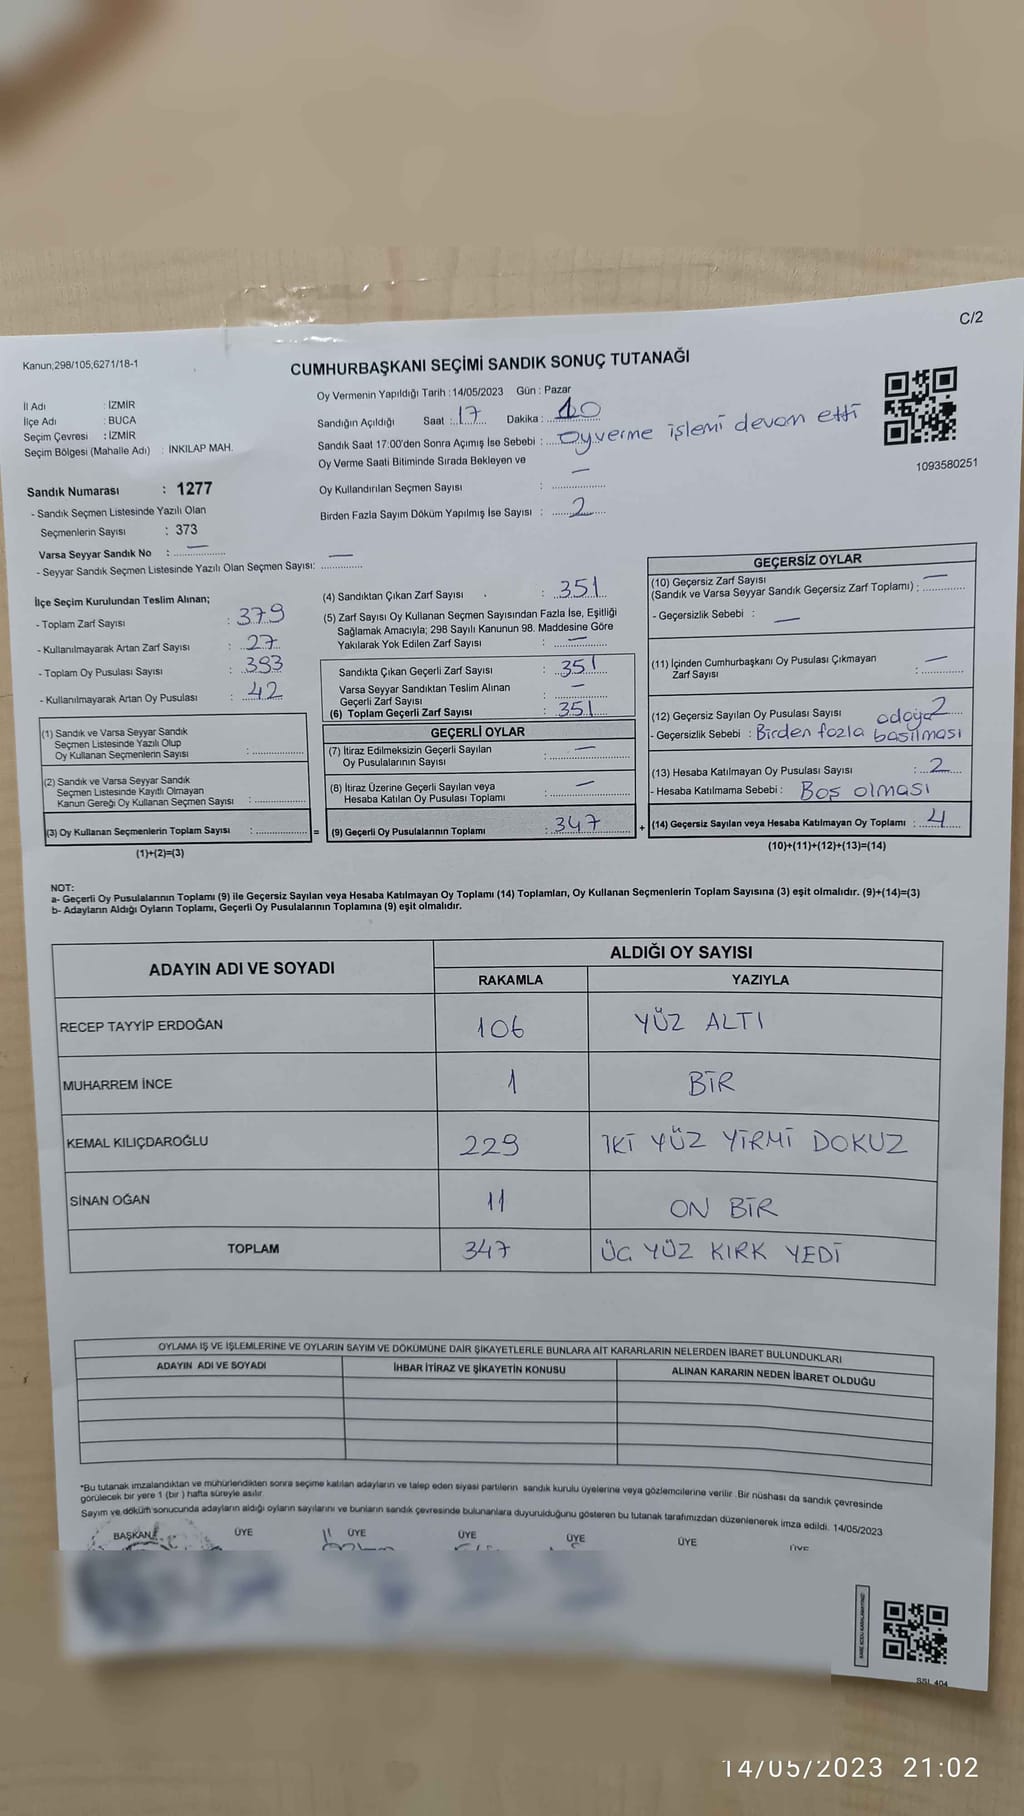 C/2
Kanun;298/105,6271/18-1
CUMHURBAŞKANI SEÇİMİ SANDIK SONUÇ TUTANAĞI
Oy Vermenin Yapıldığı Tarih : 14/05/2023 Gün : Pazar
İl Adı : İZMİR
İlçe Adı : BUCA
Seçim Çevresi : İZMİR
Seçim Bölgesi (Mahalle Adı) : İNKILAP MAH.
Sandığın Açıldığı Saat : 17 Dakika : 10
Sandık Saat 17:00'den Sonra Açımış İse Sebebi : Oy verme işlemi devam etti
Oy Verme Saati Bitiminde Sırada Bekleyen ve
Oy Kullandırılan Seçmen Sayısı : —
Birden Fazla Sayım Döküm Yapılmış İse Sayısı : 2
1093580251
Sandık Numarası : 1277
- Sandık Seçmen Listesinde Yazılı Olan
Seçmenlerin Sayısı : 373
Varsa Seyyar Sandık No : —
- Seyyar Sandık Seçmen Listesinde Yazılı Olan Seçmen Sayısı: —
İlçe Seçim Kurulundan Teslim Alınan;
- Toplam Zarf Sayısı : 379
- Kullanılmayarak Artan Zarf Sayısı : 27
- Toplam Oy Pusulası Sayısı : 393
- Kullanılmayarak Artan Oy Pusulası : 42
(1) Sandık ve Varsa Seyyar Sandık
Seçmen Listesinde Yazılı Olup
Oy Kullanan Seçmenlerin Sayısı :
(2) Sandık ve Varsa Seyyar Sandık
Seçmen Listesinde Kayıtlı Olmayan
Kanun Gereği Oy Kullanan Seçmen Sayısı :
(3) Oy Kullanan Seçmenlerin Toplam Sayısı : =
(1)+(2)=(3)
(4) Sandıktan Çıkan Zarf Sayısı : 351
(5) Zarf Sayısı Oy Kullanan Seçmen Sayısından Fazla İse, Eşitliği
Sağlamak Amacıyla; 298 Sayılı Kanunun 98. Maddesine Göre
Yakılarak Yok Edilen Zarf Sayısı : —
Sandıkta Çıkan Geçerli Zarf Sayısı : 351
Varsa Seyyar Sandıktan Teslim Alınan
Geçerli Zarf Sayısı : —
(6) Toplam Geçerli Zarf Sayısı : 351
GEÇERLİ OYLAR
(7) İtiraz Edilmeksizin Geçerli Sayılan
Oy Pusulalarının Sayısı : —
(8) İtiraz Üzerine Geçerli Sayılan veya
Hesaba Katılan Oy Pusulası Toplamı : —
(9) Geçerli Oy Pusulalarının Toplamı : 347 +
GEÇERSİZ OYLAR
(10) Geçersiz Zarf Sayısı
(Sandık ve Varsa Seyyar Sandık Geçersiz Zarf Toplamı) : —
- Geçersizlik Sebebi : —
(11) İçinden Cumhurbaşkanı Oy Pusulası Çıkmayan
Zarf Sayısı : —
(12) Geçersiz Sayılan Oy Pusulası Sayısı : 2
- Geçersizlik Sebebi : Birden fazla adaya basılması
(13) Hesaba Katılmayan Oy Pusulası Sayısı : 2
- Hesaba Katılmama Sebebi : Boş olması
(14) Geçersiz Sayılan veya Hesaba Katılmayan Oy Toplamı : 4
(10)+(11)+(12)+(13)=(14)
NOT:
a- Geçerli Oy Pusulalarının Toplamı (9) ile Geçersiz Sayılan veya Hesaba Katılmayan Oy Toplamı (14) Toplamları, Oy Kullanan Seçmenlerin Toplam Sayısına (3) eşit olmalıdır. (9)+(14)=(3)
b- Adayların Aldığı Oyların Toplamı, Geçerli Oy Pusulalarının Toplamına (9) eşit olmalıdır.
ADAYIN ADI VE SOYADI ALDIĞI OY SAYISI
RAKAMLA YAZIYLA
RECEP TAYYİP ERDOĞAN 106 YÜZ ALTI
MUHARREM İNCE 1 BİR
KEMAL KILIÇDAROĞLU 229 İKİ YÜZ YİRMİ DOKUZ
SİNAN OĞAN 11 ON BİR
TOPLAM 347 ÜÇ YÜZ KIRK YEDİ
OYLAMA İŞ VE İŞLEMLERİNE VE OYLARIN SAYIM VE DÖKÜMÜNE DAİR ŞİKAYETLERLE BUNLARA AİT KARARLARIN NELERDEN İBARET BULUNDUKLARI
ADAYIN ADI VE SOYADI İHBAR İTİRAZ VE ŞİKAYETİN KONUSU ALINAN KARARIN NEDEN İBARET OLDUĞU
*Bu tutanak imzalandıktan ve mühürlendikten sonra seçime katılan adayların ve talep eden siyasi partilerin sandık kurulu üyelerine veya gözlemcilerine verilir .Bir nüshası da sandık çevresinde
görülecek bir yere 1 (bir ) hafta süreyle asılır.
Sayım ve döküm sonucunda adayların aldığı oyların sayılarını ve bunların sandık çevresinde bulunanlara duyurulduğunu gösteren bu tutanak tarafımızdan düzenlenerek imza edildi. 14/05/2023
BAŞKAN ÜYE ÜYE ÜYE ÜYE ÜYE ÜYE
SSL 404
14/05/2023 21:02